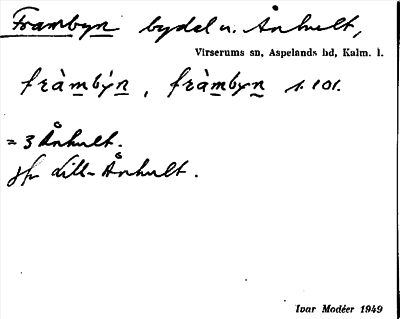 Frambyn bydel u. Ånhult,
Virserums sn, Aspelands hd, Kalm. l.
fràmbýn, fràmbyn s. 101.
= 3 Ånhult.
jfr Lill-Ånhult.
Ivar Modéer 1949